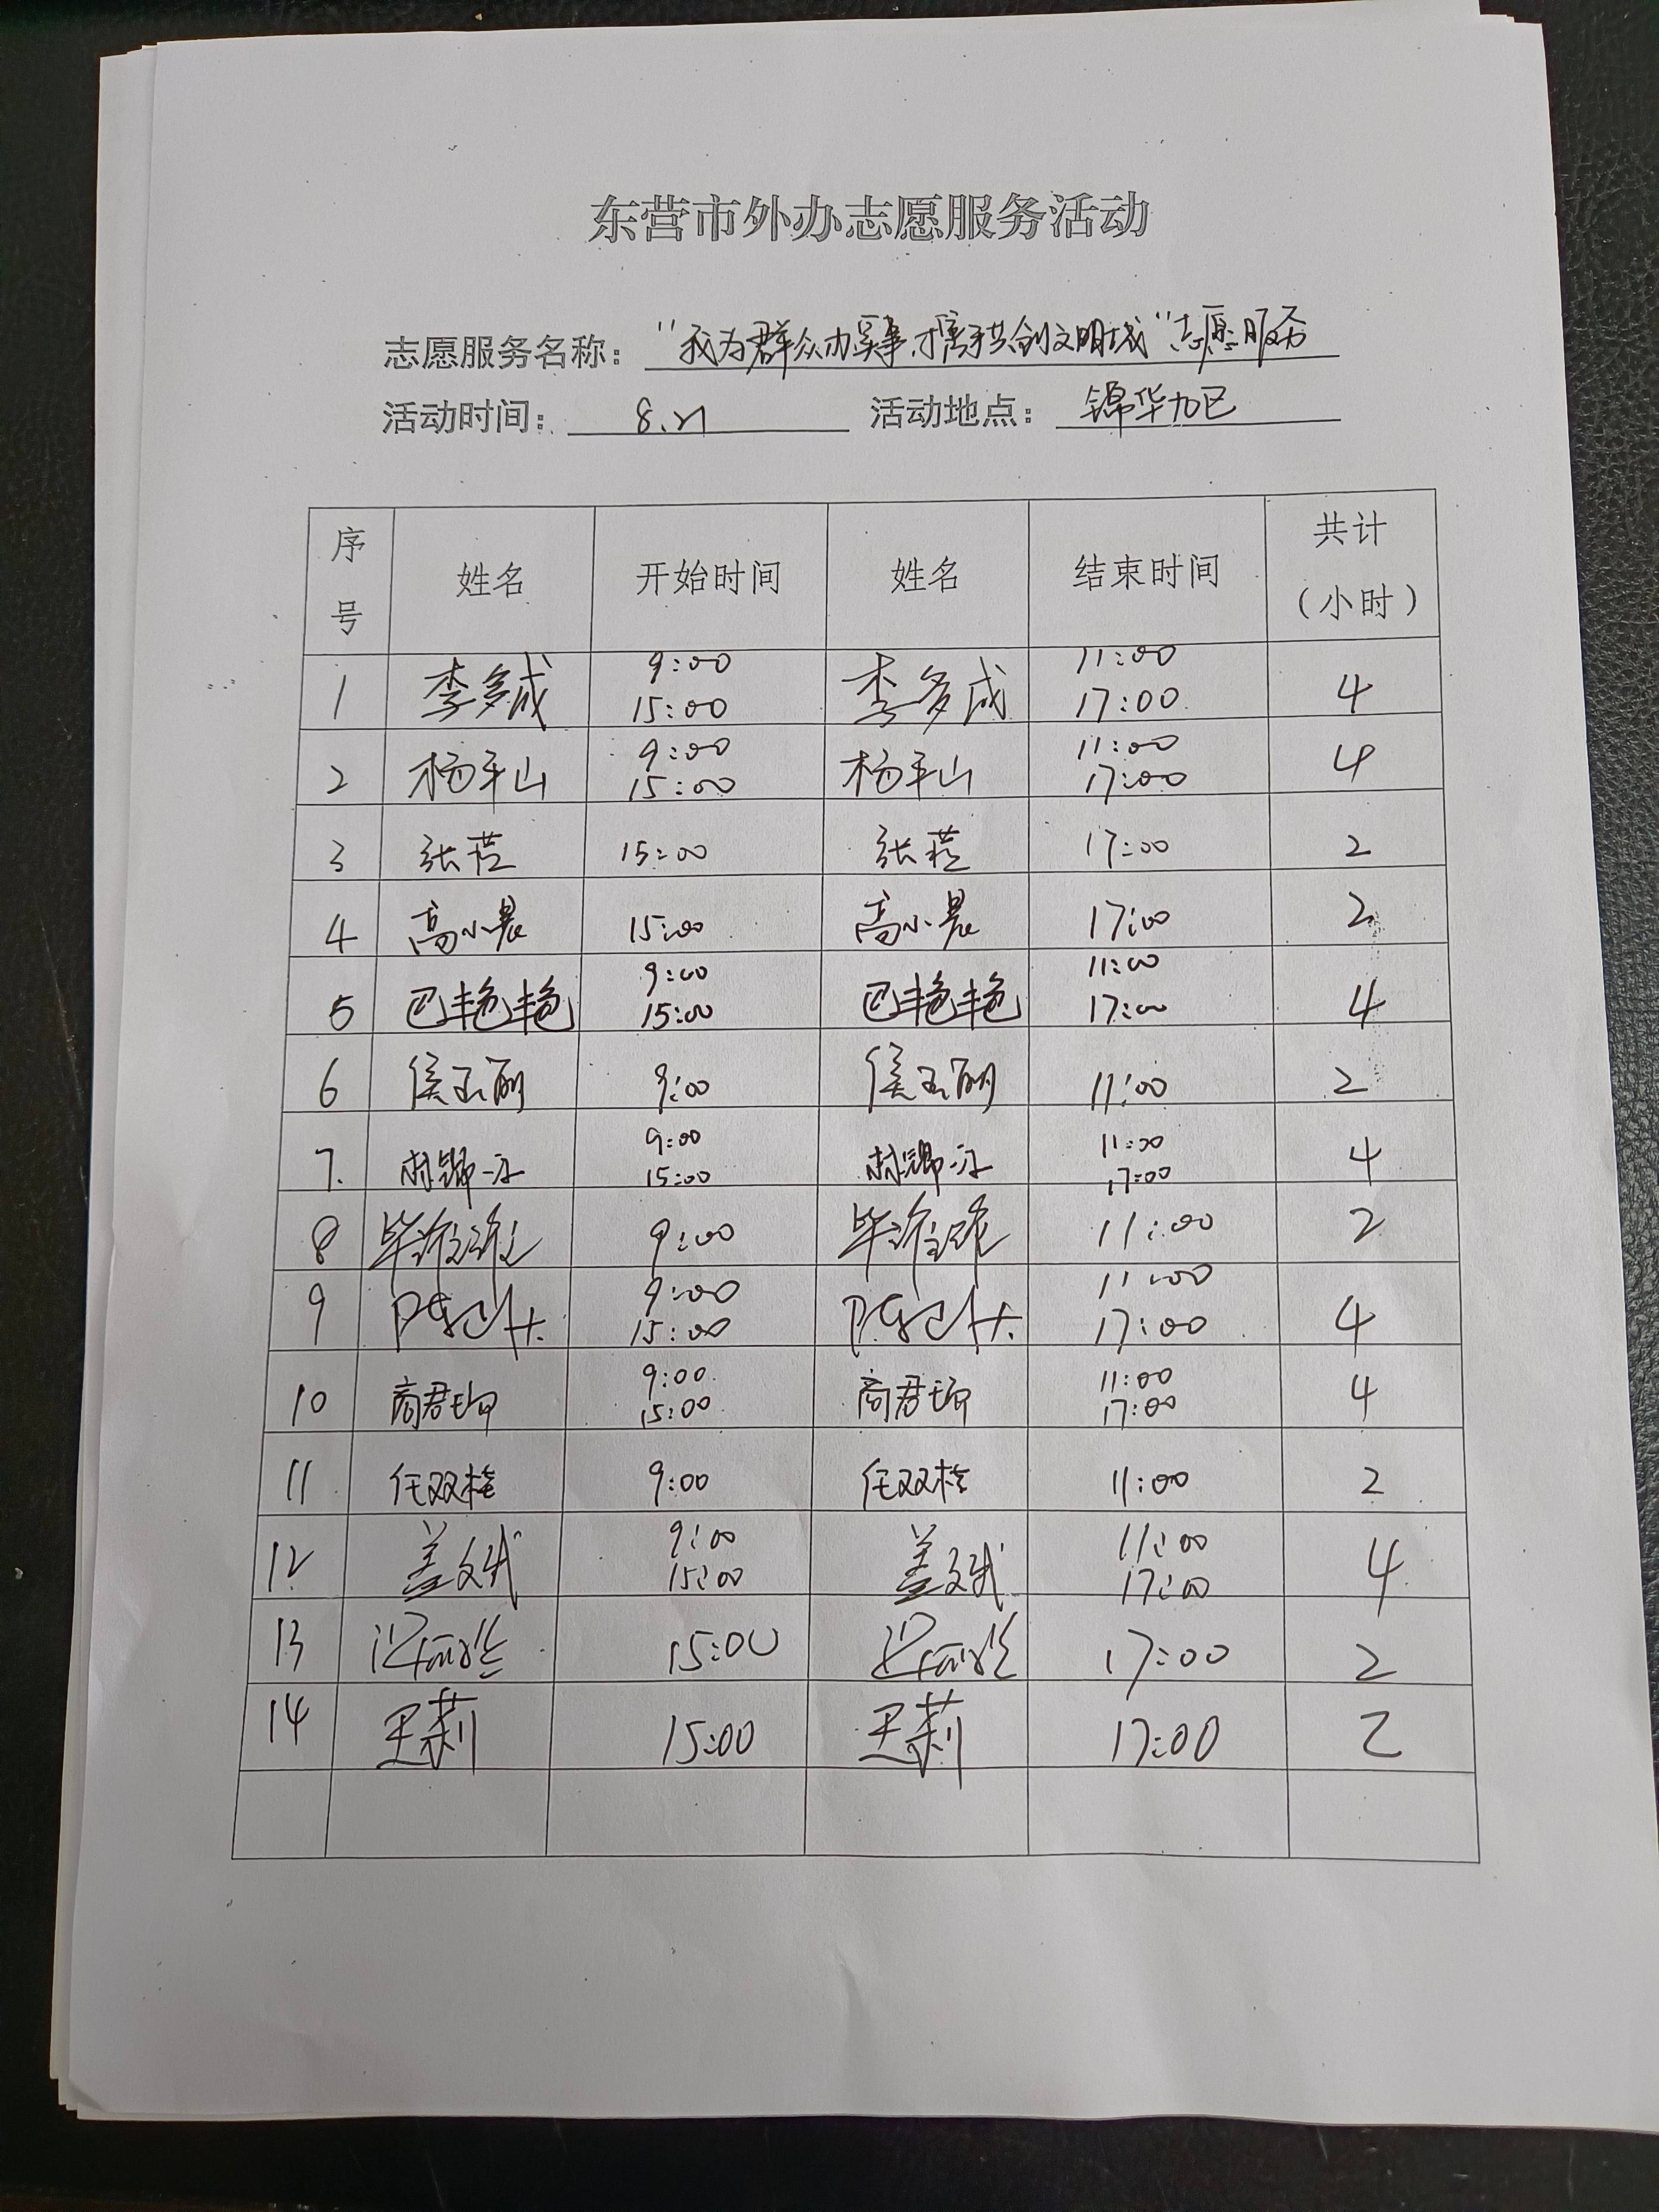 东营市外办志愿服务活动
志愿服务名称："我为群众办实事，携手共创文明城"志愿服务
活动时间：8.21 活动地点：锦华九区
序号 姓名 开始时间 姓名 结束时间 共计（小时）
1 李多成 9:00 15:00 李多成 11:00 17:00 4
2 杨平山 9:00 15:00 杨平山 11:00 17:00 4
3 张 15:00 张 17:00 2
4 高小晨 15:00 高小晨 17:00 2
5 巴艳艳 9:00 15:00 巴艳艳 11:00 17:00 4
6 侯玉丽 9:00 侯玉丽 11:00 2
7. 9:00 15:00 11:00 17:00 4
8 毕 9:00 毕 11:00 2
9 陈 9:00 15:00 陈 11:00 17:00 4
10 商君 9:00 15:00 商君 11:00 17:00 4
11 任双 9:00 任双 11:00 2
12 盖文斌 9:00 15:00 盖文斌 11:00 17:00 4
13 15:00 17:00 2
14 王莉 15:00 王莉 17:00 2